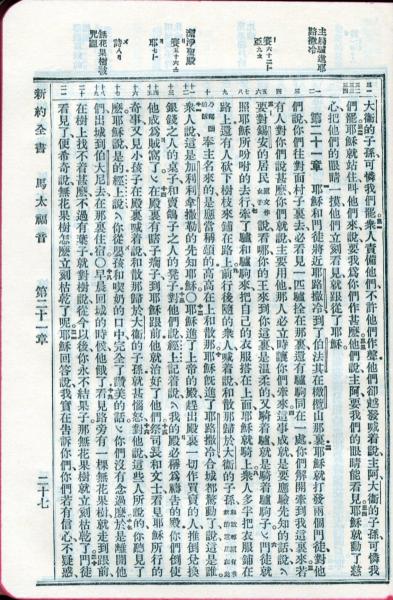 主騎驢進耶路撒冷
潔淨聖殿
無花果樹被咒詛
大衛的子孫可憐我們罷衆人責備他們不許他們作聲他們卻越發喊着說主阿大衛的子孫可憐我
們罷耶穌就站住叫他們來說要我爲你們作甚麽他們說主阿要我們的眼睛能看見耶穌就動了慈
心把他們的眼睛一摸他們立刻看見就跟從了耶穌
第二十一章 耶穌和門徒將近耶路撒冷到了伯法其在橄欖山那裏耶穌就打發兩個門徒對他
們說你們往對面村子裏去必看見一匹驢拴在那裏還有驢駒同在一處你們解開牽到我這裏來若
有人對你們說甚麽你們就說主要用他那人必立時讓你們牽來這事成就是要應驗先知的話說
要對錫安的居民說看哪你的王來到你這裏是溫柔的又騎着驢就是騎着驢駒子門徒就
照耶穌所吩咐的去行牽了驢和驢駒來把自己的衣服搭在上面耶穌就騎上衆人多半把衣服鋪在
路上還有人砍下樹枝來鋪在路上前行後隨的衆人喊着說和散那歸於大衛的子孫
奉主名來的是應當稱頌的高高在上和散那耶穌旣進了耶路撒冷合城都驚動了說這是誰
衆人說這是加利利拿撒勒的先知耶穌○耶穌進了上帝的殿趕出殿裏一切作買賣的人推倒兌換
銀錢之人的桌子和賣鴿子之人的凳子對他們說經上記着說我的殿必稱爲禱告的殿你們倒使
他成爲賊窩了在殿裏有瞎子瘸子到耶穌跟前他就治好了他們祭司長和文士看見耶穌所行的
奇事又見小孩子在殿裏喊着說和散那歸於大衛的子孫就甚惱怒對他說這些人所說的你聽見了
麽耶穌說是的經上說你從嬰孩和喫奶的口中完全了讚美的話你們沒有念過麽於是離開他
們出城到伯大尼去在那裏住宿○早晨回城的時候他餓了看見路旁有一棵無花果樹就走到跟前
在樹上找不着甚麽不過有葉子就對樹說從今以後你永不結果子那無花果樹就立刻枯乾了門徒
看見了便希奇說無花果樹怎麽立刻枯乾了呢耶穌回答說我實在告訴你們你們若有信心不疑惑
新約全書 馬太福音 第二十一章 二十七